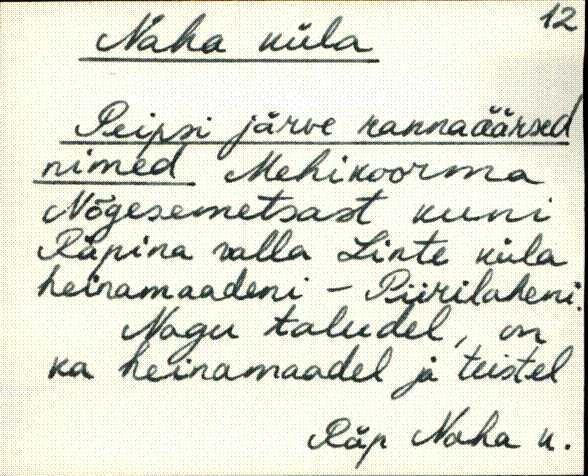 12
Naha küla
Peipsi järve rannaäärsed
nimed Mehikoorma
Nõgesemetsast kuni
Räpina valla Linte küla
heinamaadeni - Piirilaheni.
Nagu taludel, on
ka heinamaadel ja teistel
Räp Naha k.